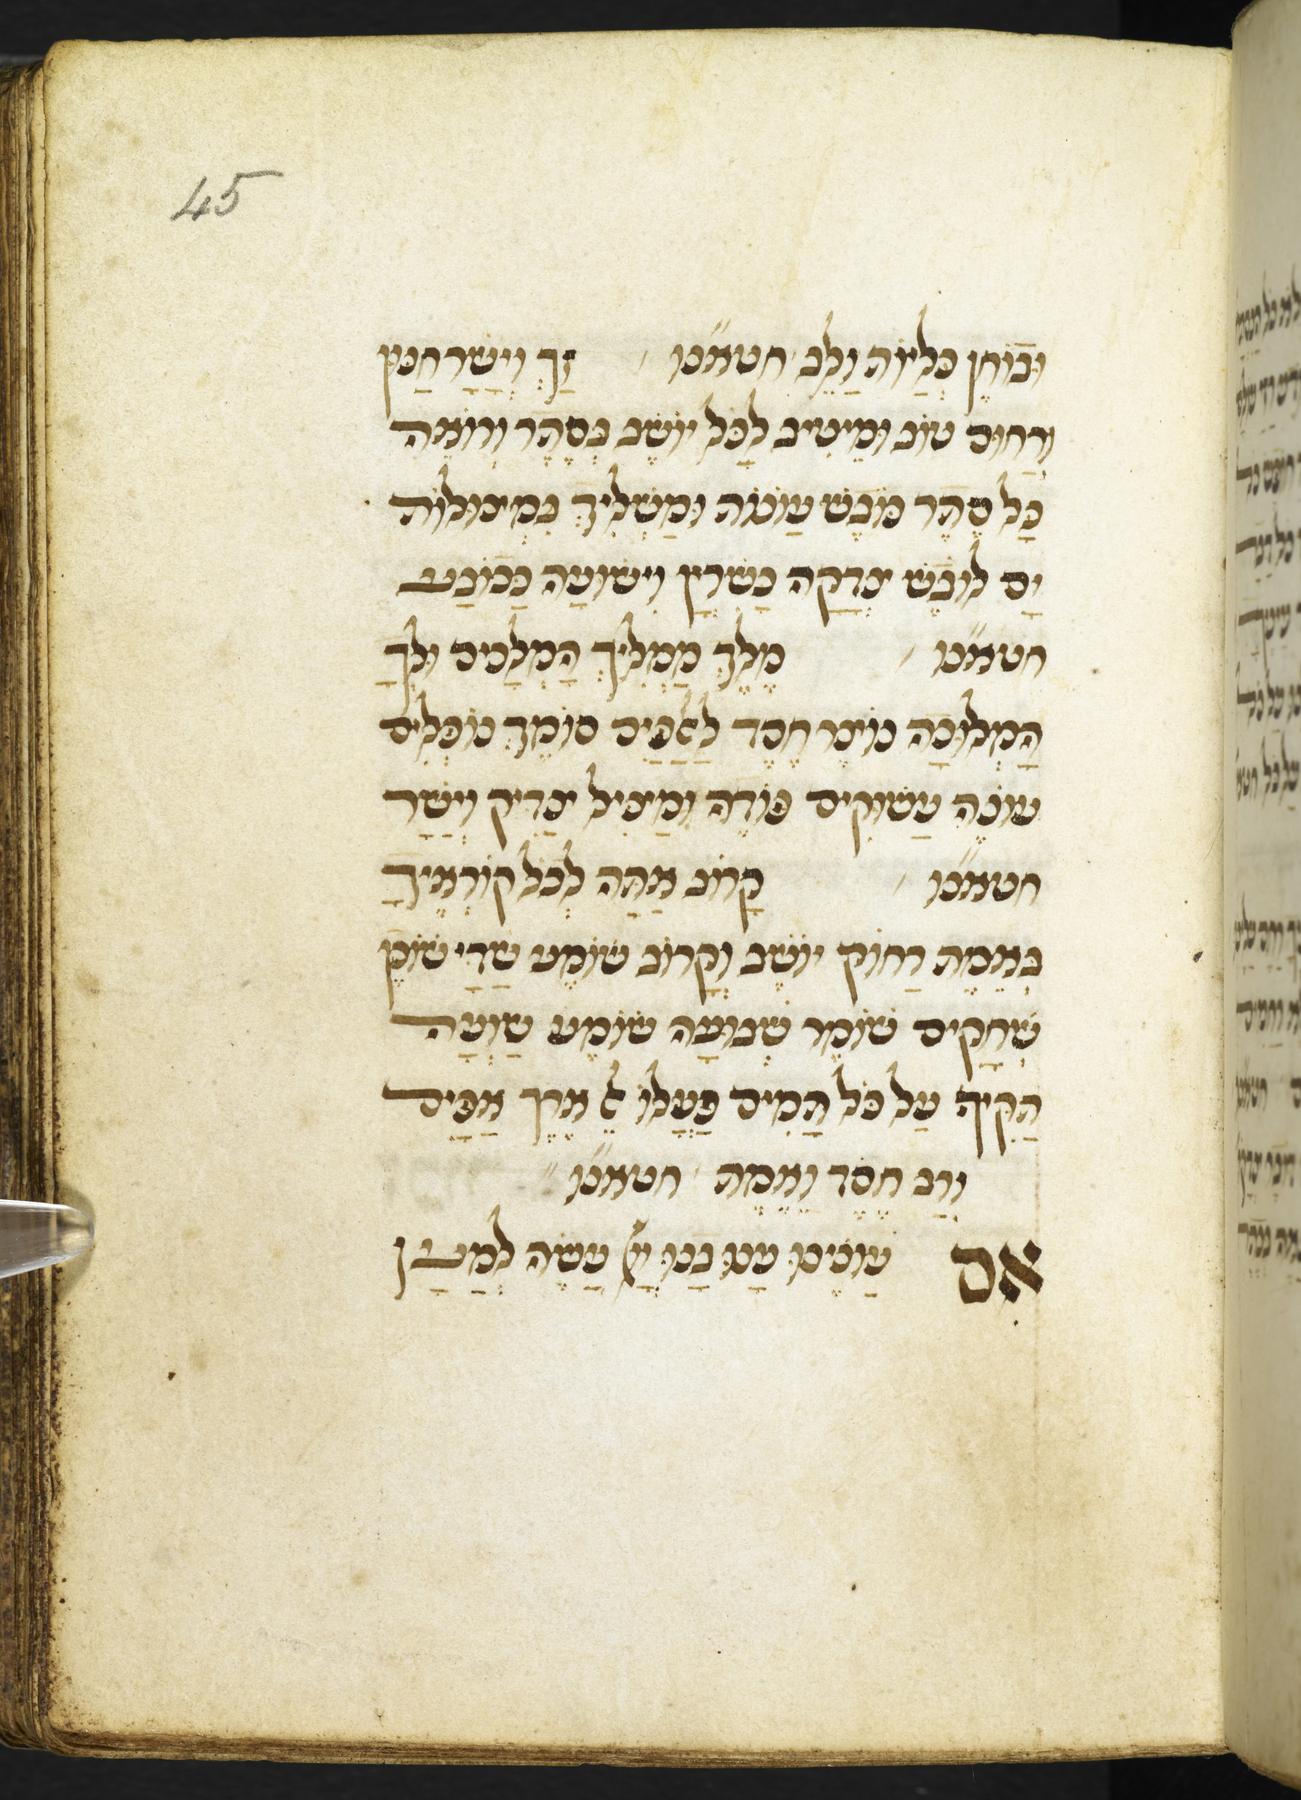 45
וּבוֹחֵן כְּלָיוֹת וָלֵב חטאנו זַךְ וְיָשָׁר חַנּוּן
וְרַחוּם טוֹב וּמֵיטִיב לַכֹּל יוֹשֵׁב בְּסֵתֶר וְרוֹאֶה
כָּל סֵתֶר כּוֹבֵשׁ עֲוֹנוֹת וּמַשְׁלִיךְ בִּמְצוּלוֹת
יָם לוֹבֵשׁ צְדָקָה כַּשִּׁרְיָן וִישׁוּעָה כַּכּוֹבַע
חטאנו מֶלֶךְ מַמְלִיךְ הַמְּלָכִים וּלְךָ
הַמְּלוּכָה נוֹצֵר חֶסֶד לַאֲלָפִים סוֹמֵךְ נוֹפְלִים
עוֹנֶה עֲשׁוּקִים פּוֹדֶה וּמַצִּיל צַדִּיק וְיָשָׁר
חטאנו קָרוֹב אַתָּה לְכֹל קוֹרְאֶיךָ
בֶּאֱמֶת רָחוֹק יוֹשֵׁב וְקָרוֹב שׁוֹמֵעַ שַׁדַּי שׁוֹכֵן
שְׁחָקִים שׁוֹמֵר שְׁבוּעָה שׁוֹמֵעַ שַׁוְעָה
הַתַּקִּיף עַל כֹּל תָּמִים פָּעֳלוֹ אֶרֶךְ אַפַּיִם
וְרַב חֶסֶד וֶאֱמֶת חטאנו
אִם עֲוֹנֵינוּ עָנוּ בָנוּ יְיָ עֲשֵׂה לְמַעַן